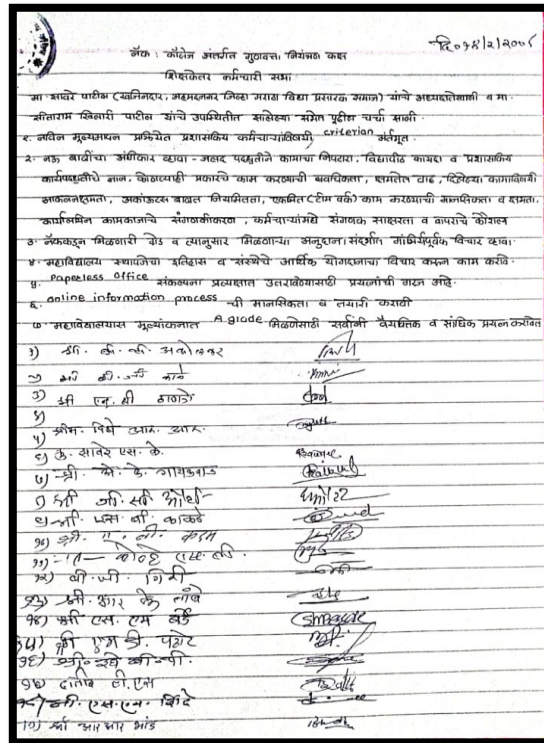 दि.०१४/२/२००८
नॅक : कौलेज अंतर्गत गुणवत्ता नियंत्रण कक्ष
शिक्षकेतर कर्मचारी सभा
मा. सावरे पाटील (खजिनदार, अहमदनगर जिल्हा मराठा विद्या प्रसारक समाज) यांचे अध्यक्षतेखाली व मा.
सीताराम खिलारी पाटील यांचे उपस्थितीत झालेल्या सभेत पुढील चर्चा झाली.
१. नविन मूल्यमापन प्रक्रियेत प्रशासकिय कर्मचाऱ्यांविषयी criterian अंर्तभूत.
२. नऊ बाबींचा अंगिकार व्हावा - जलद पध्दतीने कामाचा निपटारा, विद्यापीठ कायदा व प्रशासकिय
कार्यपध्दतीचे ज्ञान, कोणत्याही प्रकारचे काम करण्याची क्षमतेत वाढ, दिलेल्या कामाविषयी
आकलनक्षमता, अकाऊंटस बाबत नियमितता, एकत्रित (टीम वर्क) काम करण्याची मानसिकता व क्षमता,
कार्यालयिन कामकाजाचे संगणकीकरण, कर्मचाऱ्यांमध्ये संगणक साक्षरता व वापराचे कौशल्य
३. नॅककडून मिळणारी ग्रेड व त्यानुसार मिळणाऱ्या अनुदाना संदर्भात गांभिर्यपूर्वक विचार व्हावा.
४. महाविद्यालय स्थापनेचा इतिहास व संस्थेचे आर्थिक योगदानाचा विचार करून काम करावे.
५. Paperless Office संकल्पना प्रत्यक्षात उतरविण्यासाठी प्रयत्नांची गरज आहे.
६. online information process ची मानसिकता व तयारी करावी
७. महाविद्यालयास मूल्यांकनात A grade मिळणेसाठी सर्वांनी वैयक्तिक व सांघिक प्रयत्न करावेत
१) श्री. अकोलकर
२) श्री बी. जी काळे
३) श्री एन. बी ठाणगे
४)
५) श्रीम. विधे आर. आर.
६) कु. सावरे एस. के.
७) श्री. के. के. गायकवाड
८) श्री जी. सी
९) श्री. एस. बी. काकडे
१०) श्री. ए. बी. कदम
११) कोल्हे एस. डी.
१२) बी. जी. गिरी
१३) श्री. आर के तांबे
१४) श्री एस. एम
१५) श्री एम डी. पगारे
१६) श्री.
१७) दातीर डी. एस
१८) श्री. एस. एन. शिंदे
१९) श्री आर आर भांड